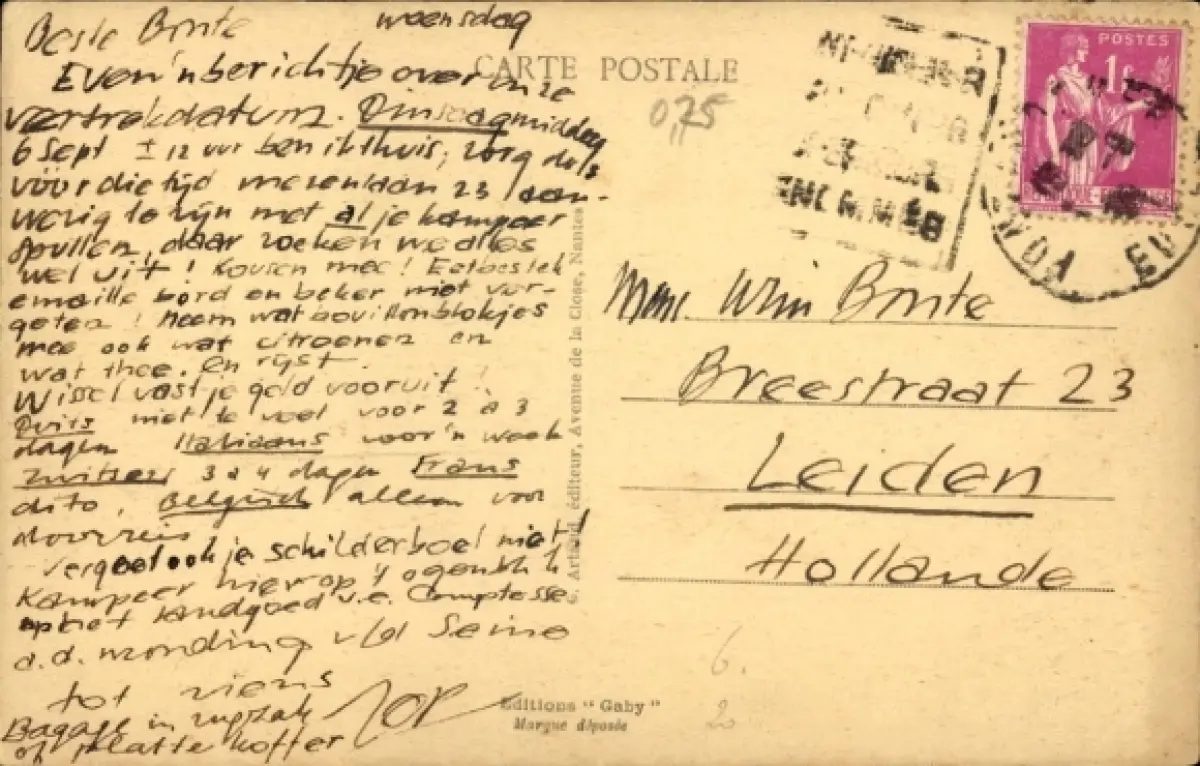 Beste Bonte woensdag
Even 'n berichtje over onze
vertrekdatum. Dinsdagmiddag
6 Sept ± 12 uur ben ik thuis, zorg dus
vóór die tijd merenlaan 23 aan-
wezig te zijn met al je kampeer
spullen, daar zoeken we alles
wel uit! Kousen mee! Eetbestek
emaille bord en beker niet ver-
geten! Neem wat bouillonblokjes
mee ook wat citroenen en
wat thee. En rijst
Wissel vast je geld vooruit!
Duits niet te veel voor 2 à 3
dagen Italiaans voor 'n week
Zwitsers 3 à 4 dagen Frans
dito, Belgisch alleen voor
doorreis
Vergeet ook je schilderboel niet!
Kampeer hier op 't ogenblik
op het landgoed v.e. Comptesse
a.d. monding v/d Seine
tot ziens
Bagage in rugzak
of platte koffer
CARTE POSTALE
0,75
POSTES
1f
Artaud, éditeur, Avenue de la Close, Nantes
Wim Bonte
Breestraat 23
Leiden
Hollande
6.
2
Editions "Gaby"
Marque déposée